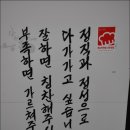 정직과 정성으로
다가가고 싶습니
잘하면 칭찬해주시
부족하면 가르쳐주